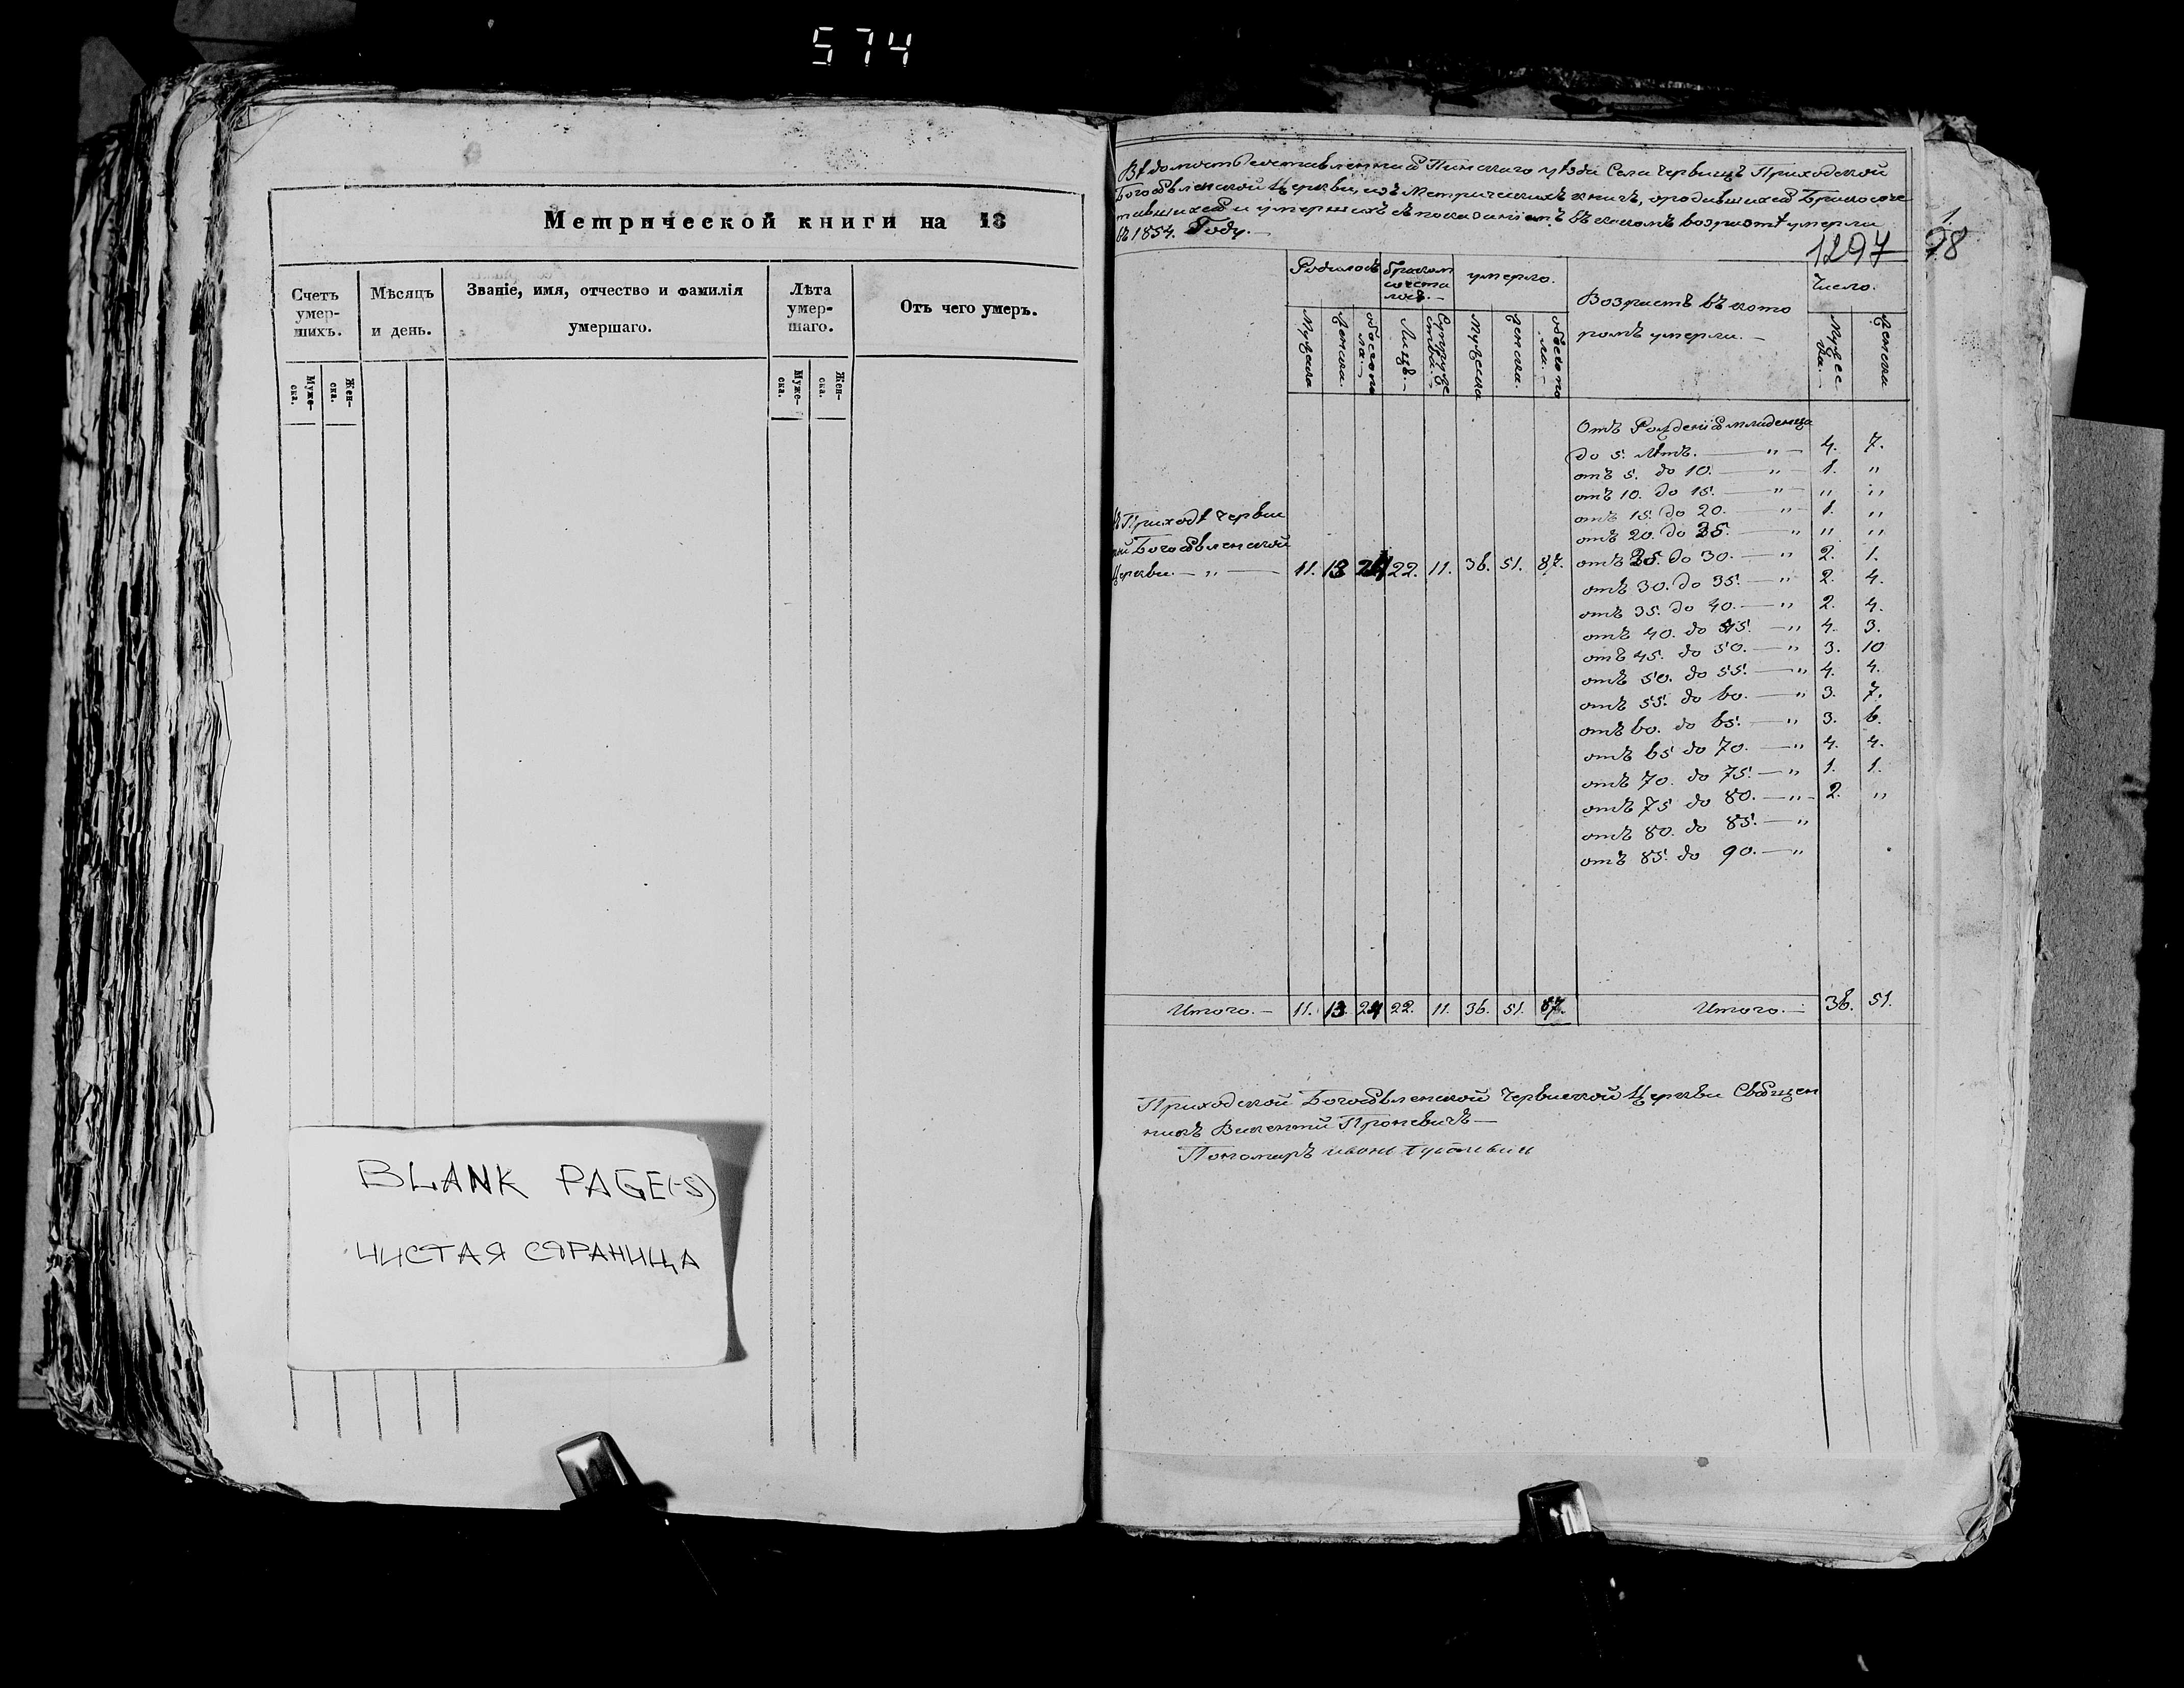 574
Метрической книги на 18
Счетъ умер-шихъ.
Мѣсяцъ и день.
Званіе, имя, отчество и фамилія умершаго.
Лѣта умер-шаго.
Отъ чего умеръ.
Муже-ска.
Жен-ска.
Муже-ска.
Жен-ска.
BLANK PAGE(-S)
ЧИСТАЯ СТРАНИЦА
Вѣдомость составленная Пинскаго уѣзда Села Червищъ Приходской
Богоявленской Церкви, изъ Метрическихъ книгъ, о родившихся Бракосоче
тавшихся и умершихъ съ показаніемъ въ какомъ возрастѣ умерли
въ 1854. Году.
1297
1.
98
Родилось
браком сочета лось.
умерло.
Возрастъ въ кото ромъ умерли.
Число.
Мужска
Женска.
обоего по ла.
Лицъ.
Супруже ствъ.
Мужска
Женска.
обоего по ла.
Мужес ка.
Женска
Отъ Рожденія младенца
до 5. Лѣтъ. — " — 4. 7.
отъ 5. до 10. — " — 1. "
отъ 10. до 15. — " — " "
отъ 15. до 20. — " 1. "
отъ 20. до 25. — " " "
отъ 25. до 30. — " 2. 1.
отъ 30. до 35. — " 2. 4.
отъ 35. до 40. — " 2. 4.
отъ 40. до 45. — " 4. 3.
отъ 45. до 50. — " 3. 10
отъ 50. до 55. — " 4. 4.
отъ 55. до 60. — " 3. 7.
отъ 60. до 65. — " 3. 6.
отъ 65 до 70. — " 4. 4.
отъ 70. до 75. — " 1. 1.
отъ 75 до 80. — " — 2. "
отъ 80. до 85. — "
отъ 85. до 90. — "
Приходѣ Черви
Богоявленской
Церкви. — " — 11. 13 24 22. 11. 36. 51. 87.
Итого. — 11. 13. 24 22. 11. 36. 51. 87. Итого. — 36. 51.
Приходской Богоявленской Червиской Церкви Священ
никъ Викентій Проневичъ —
Пономаръ